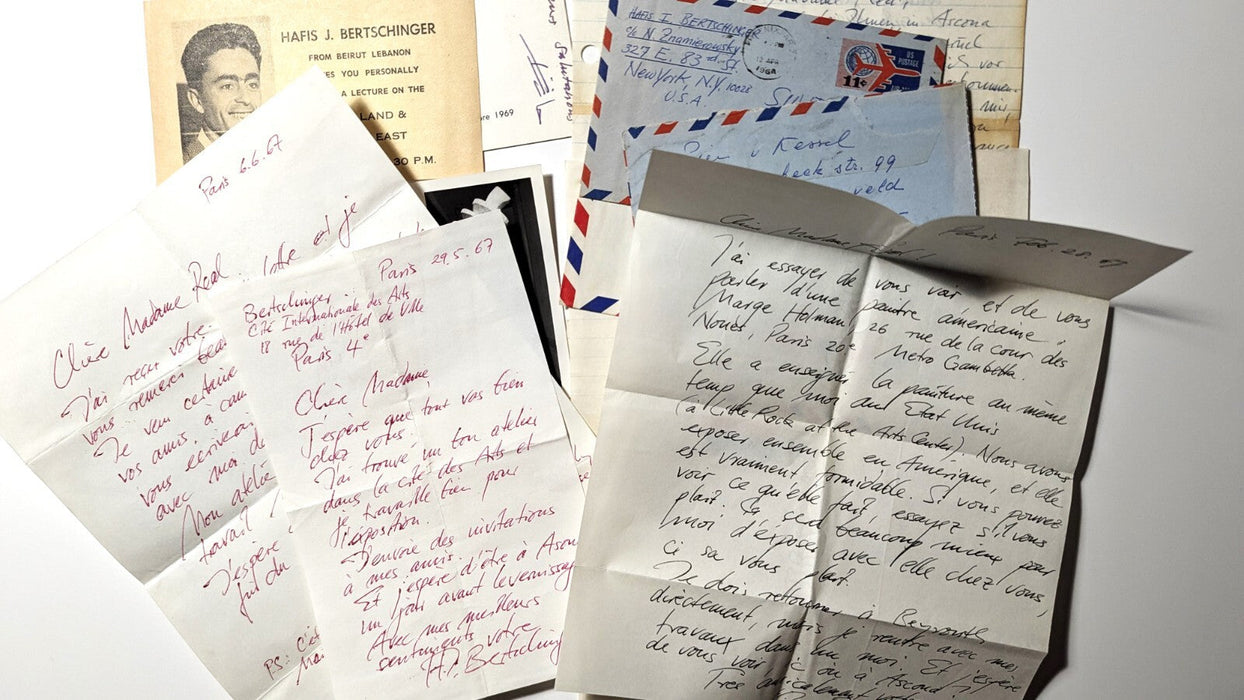 HAFIS J. BERTSCHINGER
FROM BEIRUT LEBANON
ES YOU PERSONALLY
A LECTURE ON THE
LAND &
EAST
30 P.M.
salutations
re 1969
HAFIS I. BERTSCHINGER
c/o N. Znamierowsky
327 E. 83rd St.
New York, N.Y. 10028
U.S.A.
12 APR
US POSTAGE
11¢
v Kessel
str. 99
veld
in Ascona
vor
Paris 6.6.67
Chère Madame Real
est je
J'ai reçu votre
vous remerci beau
Je vem certaine
vos amis, a cam
vous ecriverai
avec moi de
Mon atelie
travai
J'espère
juil du
PS: C'e
Paris 29.5.67
Bertschinger
Cité Internationale des Arts
18 rue de l'Hôtel de Ville
Paris 4e
Chère Madame
J'espère que tout vas bien
chez vous.
J'ai trouvé un bon atelier
dans la cité des Arts et
je travaille bien pour
l'exposition.
J'envoie des invitations
à mes amis.
Et j'espère d'être à Asco
un jour avant le vernissag
Avec mes meilleurs
sentiments votre
H.I. Bertsching
Chère Madame
Paris Feb. 28. 67
J'ai essayer de vous voir et de vous
parler d'une peintre américaine,
Marge Holman, 26 rue de la cour des
Noues, Paris 20e Metro Gambetta.
Elle a enseigner la painture au même
temp que moi aux Etat Unis
(à Little Rock at the Arts Center). Nous avons
exposer ensemble en Amerique, et elle
est vraiment formidable. Si vous pouvez
voir ce qu'elle fait, essayez s'il vous
plait. Sa sera beaucoup mieux pour
moi d'exposer avec elle chez vous,
ci sa vous plait.
Je dois retourner à Beyrouth
directement, mais je rentre avec mes
travaux, dans un moi. Et j'espère
de vous voir ici ou à Ascona!
Très amicalement